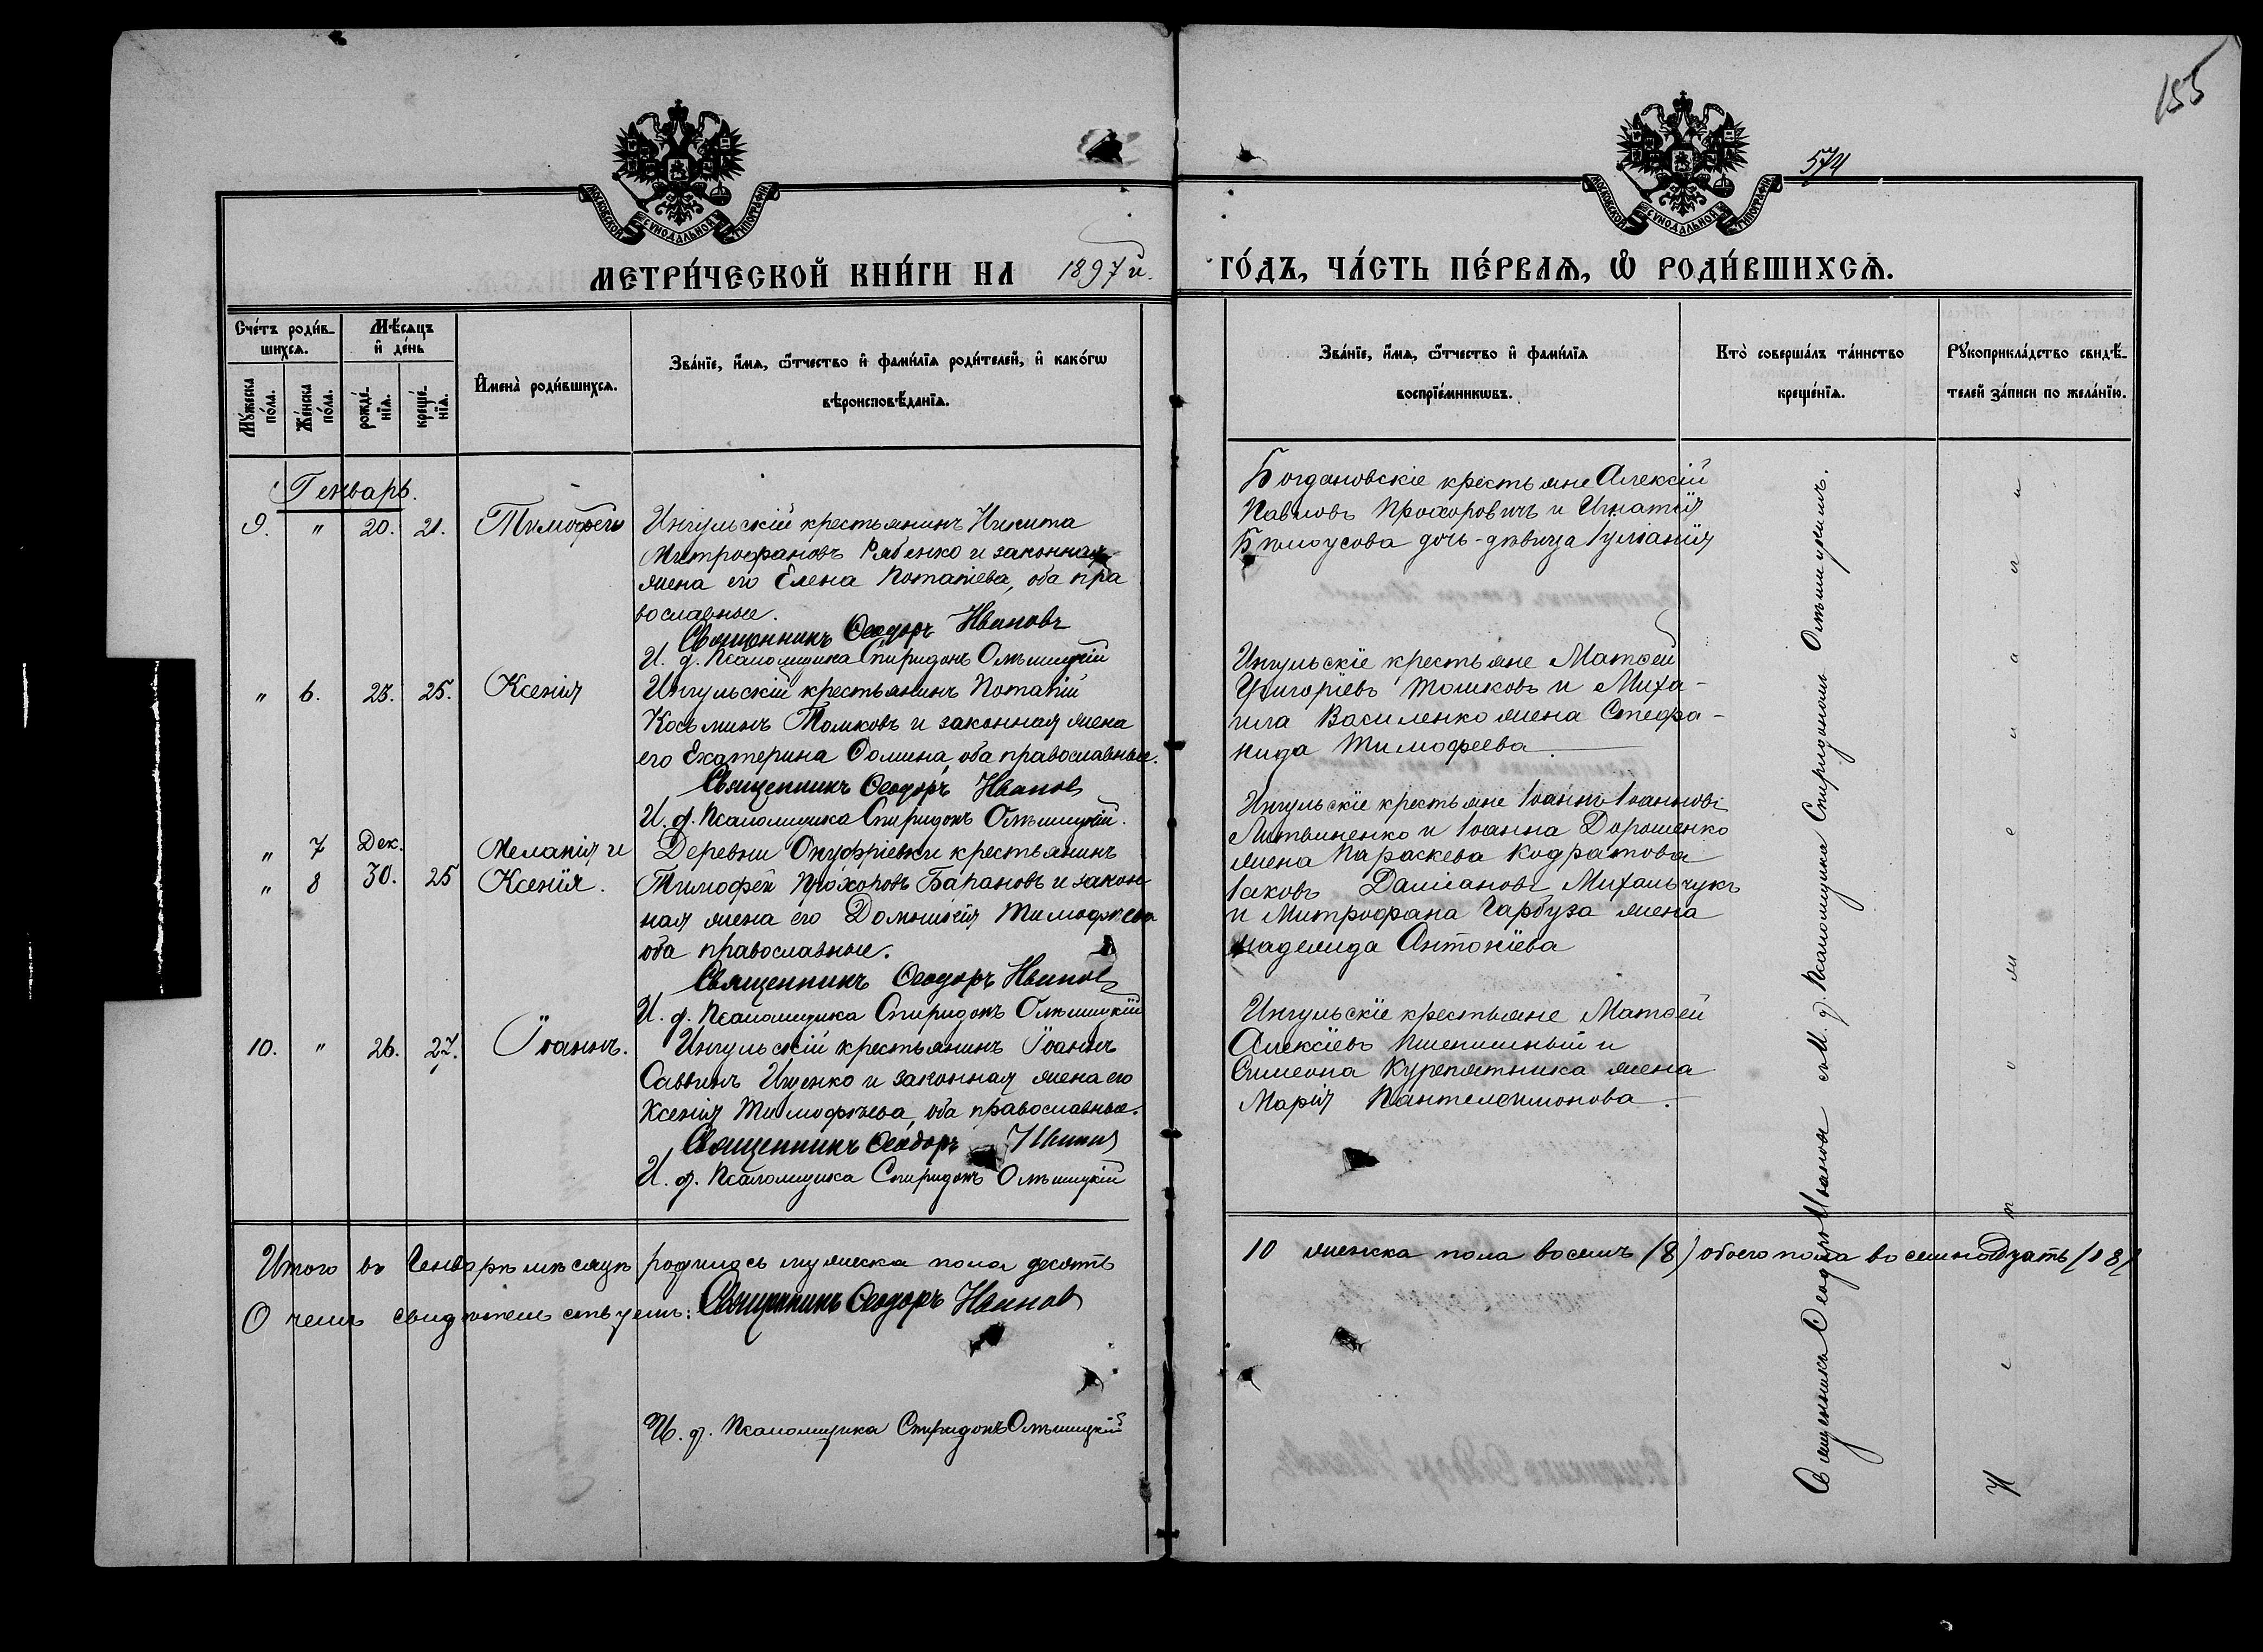 155
574
МОСКОВСКОЙ СѴНОДАЛЬНОЙ ТИПОГРАФІИ
МОСКОВСКОЙ СѴНОДАЛЬНОЙ ТИПОГРАФІИ
МЕТРИ́ЧЕСКОЙ КНИ́ГИ НА 1897 й.
ГО́ДЪ, ЧА́СТЬ ПЕ́РВАѦ, Ѡ РОДИ́ВШИХСѦ.
Сче́тъ роди́в-
шихсѧ.
Мꙋ́жеска по́ла.
Же́нска по́ла.
Мѣ́сѧцъ и де́нь
рожде́-нїѧ.
креще́-нїѧ.
Имена̀ роди́вшихсѧ.
Зва́нїе, и́мѧ, ѻ́тчество и фами́лїѧ роди́телей, и како́гѡ
вѣроисповѣ́данїѧ.
Зва́нїе, и́мѧ, ѻ́тчество и фами́лїѧ
воспрїе́мникѡвъ.
Кто̀ соверша́лъ та́инство
креще́нїѧ.
Рꙋкоприкла́дство свидѣ́-
телей за́писи по жела́нїю.
Генварь.
9. " 20. 21. Тимофей
Ингульскій крестьянинъ Никита
Митрофановъ Рябенко и законная
жена его Елена Потапіева, оба пра
вославные.
Священникъ Ѳеодоръ Ивановъ
И. д. Псаломщика Спиридонъ Ольшицкій
Богдановскіе крестьяне Алексій
Павловъ Прохоровичъ и Игнатія
Бѣлоусова дочь-дѣвица Іуліанія
" 6. 25. 25. Ксенія
Ингульскій крестьянинъ Потапій
Косьминъ Томковъ и законная жена
его Екатерина Ѳомина, оба православные.
Священникъ Ѳеодоръ Ивановъ
И. д. Псаломщика Спиридонъ Ольшицкій.
Ингульскіе крестьяне Матѳей
Григоріевъ Томковъ и Миха-
ила Василенко жена Стефа-
нида Тимофеева
" 7 Дек. Меланія и
" 8 30. 25 Ксенія.
Деревни Онуфріевки крестьянинъ
Тимофей Прохоровъ Барановъ и закон
ная жена его Домникія Тимофѣева
оба православные.
Священникъ Ѳеодоръ Ивановъ
И. д. Псаломщика Спиридонъ Ольшицкій
Ингульскіе крестьяне Іоаннъ Іоанновъ
Литвиненко и Іоанна Дорошенко
жена Параскева Кодратова
Іаковъ Даміановъ Михальчукъ
и Митрофана Гарбуза жена
Антоніева
10. " 26. 27. Іоаннъ.
Ингульскій крестьянинъ Іоаннъ
Саввинъ Ищенко и законная жена его
Ксенія Тимофѣева, оба православные.
Священникъ Ѳеодоръ Ивановъ
И. д. Псаломщика Спиридонъ Ольшицкій
Ингульскіе крестьяне Матѳей
Алексіевъ Пшеничный и
Симеона Курепятника жена
Марія Пантелеимонова.
Священникъ Ѳеодоръ Ивановъ съ И. д. Псаломщика Спиридономъ Ольшицкимъ.
Итого въ Генварѣ мѣсяцѣ родилось мужеска пола десять
10 женска пола восемь (8) обоего пола восемнадцать (18)
О чемъ свидѣтельствуемъ: Священникъ Ѳеодоръ Ивановъ
И. д. Псаломщика Спиридонъ Ольшицкій